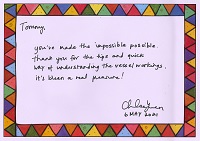 Tommy,
you've made the impossible possible.
thank you for the tips and quick
way of understanding the vessel workings.
it's been a real pleasure!
6 MAY 2001